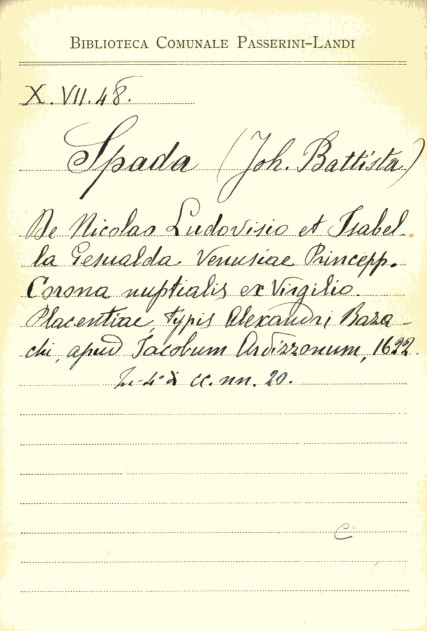 BIBLIOTECA COMUNALE PASSERINI-LANDI
X. VII. 48.
Spada (Joh. Battista)
De Nicolao Ludovisio et Isabel
la Gesualda Venusiae Princepp.
Corona nuptialis ex Virgilio.
Placentiae, typis Alexandri Baza-
chi, apud Jacobum Ardizzonum, 1622.
In-4° cc. nn. 20.
C